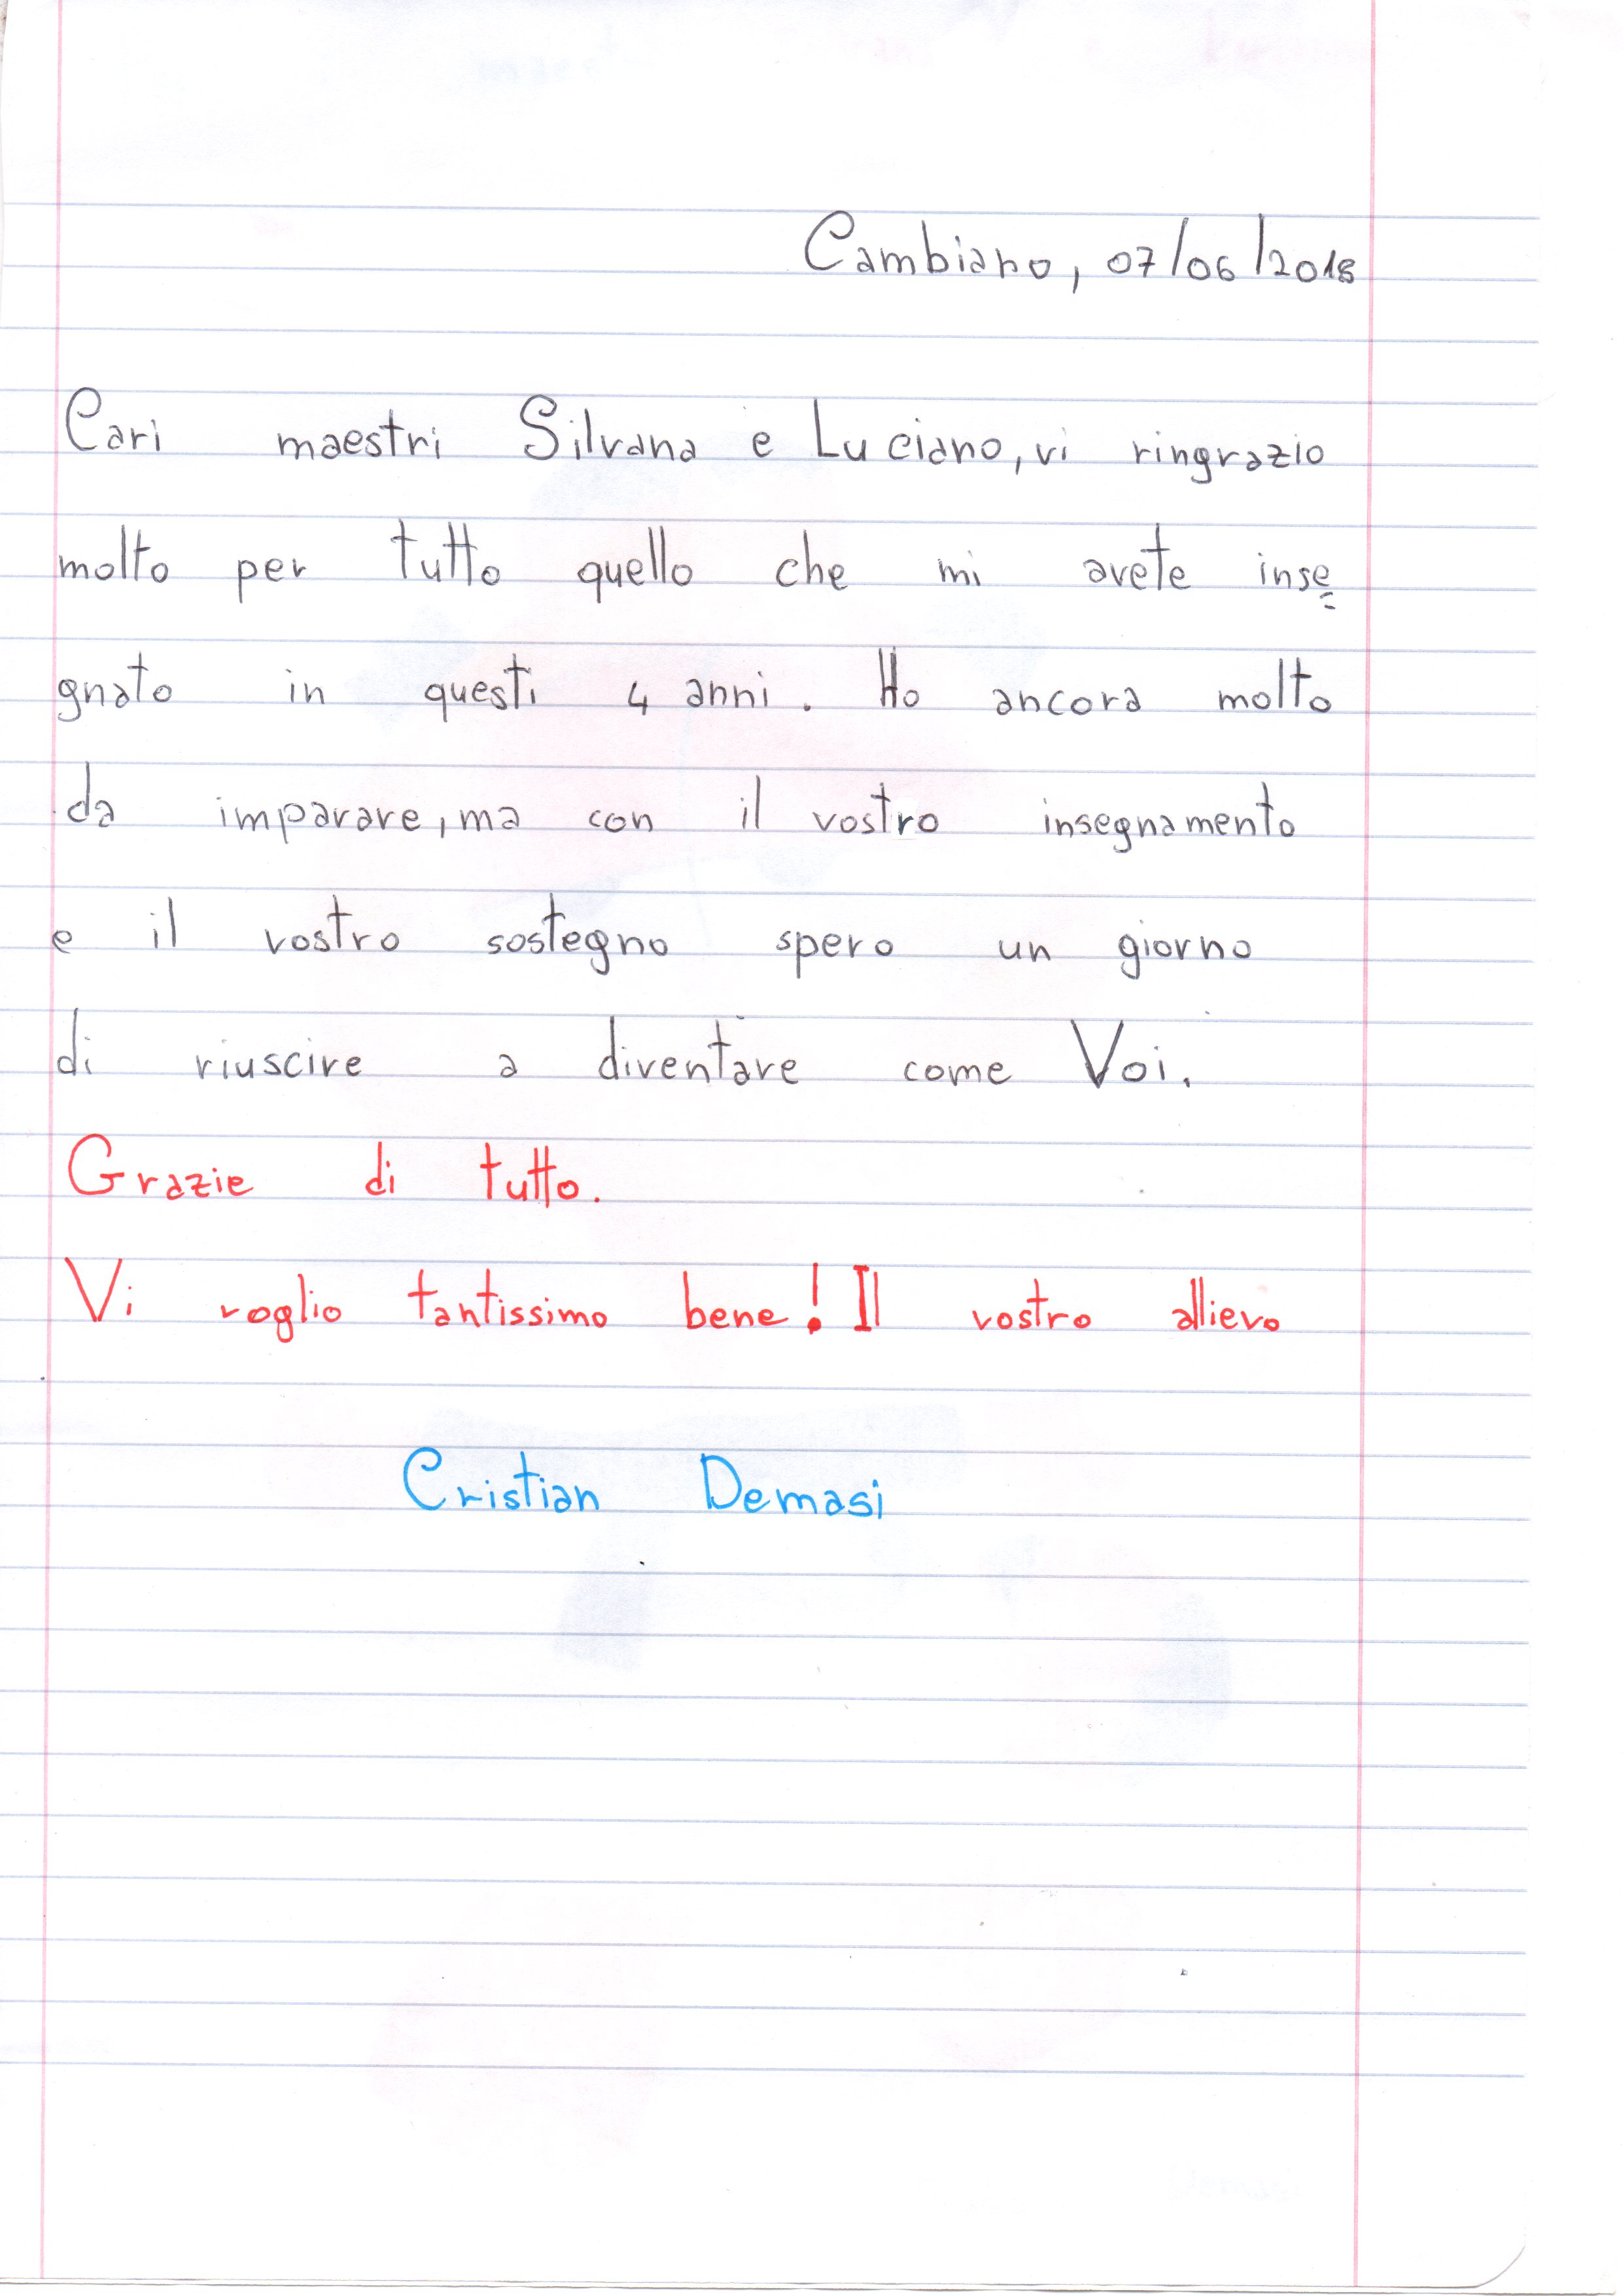 Cambiano, 07/06/2018
Cari maestri Silvana e Luciano, vi ringrazio
molto per tutto quello che mi avete inse
gnato in questi 4 anni. Ho ancora molto
da imparare, ma con il vostro insegnamento
e il vostro sostegno spero un giorno
di riuscire a diventare come Voi.
Grazie di tutto.
Vi voglio tantissimo bene! Il vostro allievo
Cristian Demasi